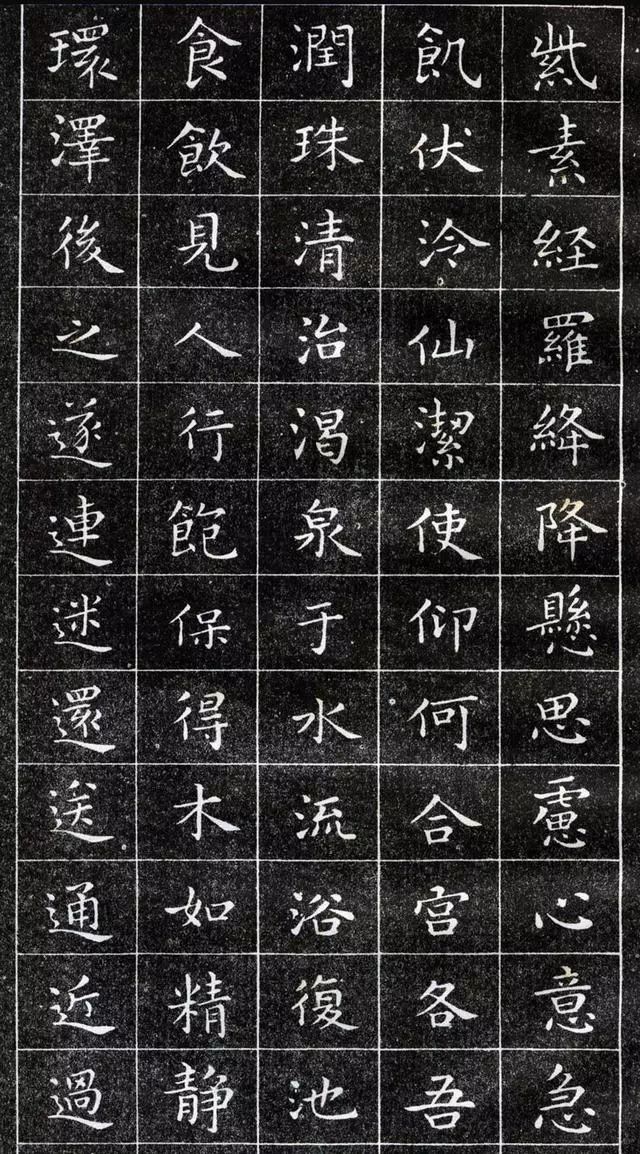 紫素経羅絳降懸思慮心意急
飢伏泠仙潔使仰何合宮各吾
潤珠清治渇泉于水流浴復池
食飲見人行飽保得木如精静
環澤後之遂連迷還送通近過